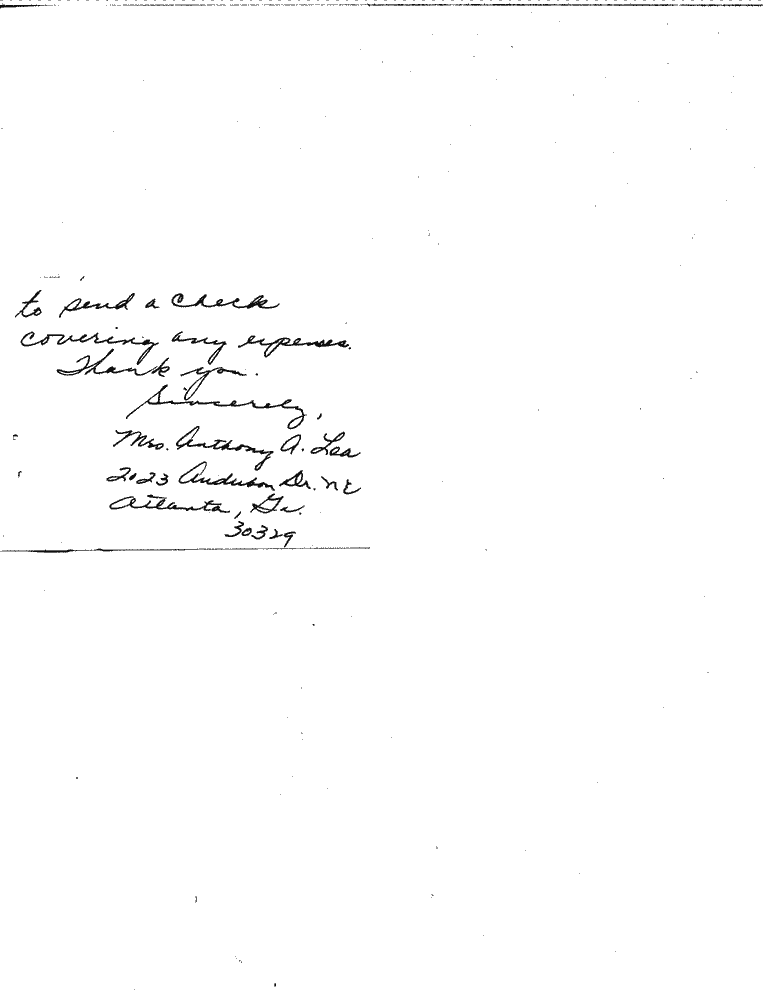 to send a check
covering any expenses.
Thank you.
Sincerely,
Mrs. Anthony A. Lea
2023 Anderson Dr. NE
Atlanta, Ga.
30329